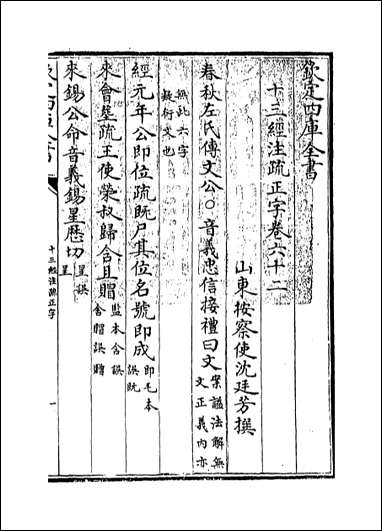 欽定四庫全書
十三經注疏正字卷六十二
山東按察使沈廷芳撰
春秋左氏傳文公〇音義忠信接禮曰文案諡法解無文正義內亦
無此六字疑衍文也
經元年公即位疏既尸其位名號即成即毛本誤既
來會葬疏王使榮叔歸含且賵監本含誤舍賵誤贈
來錫公命音義錫星歷切星誤呈
十三經注疏正字
一